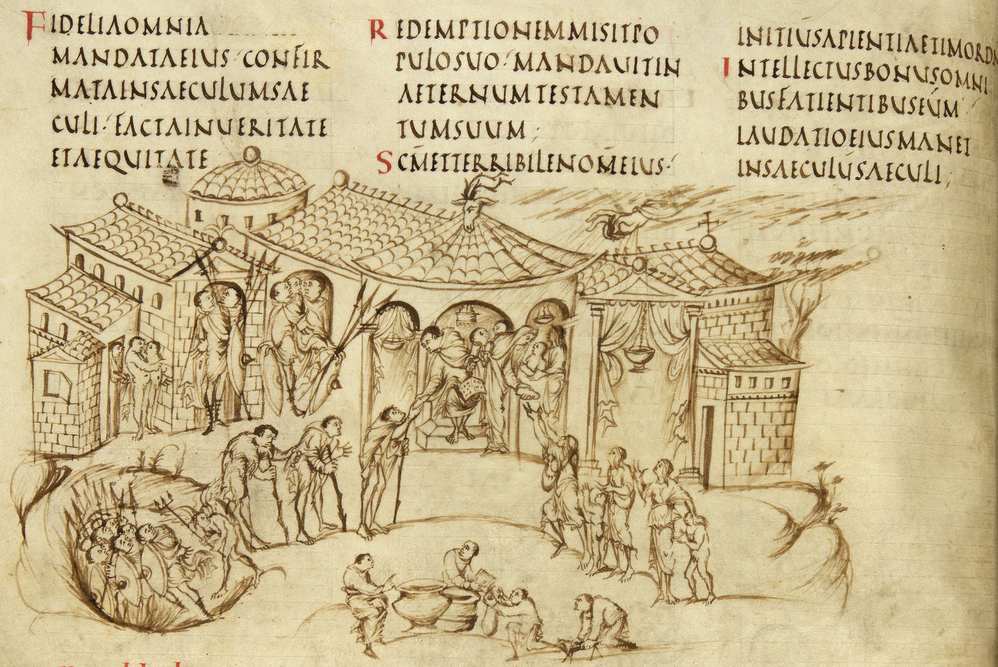 FIDELIAOMNIA
MANDATAEIUS·CONFIR
MATAINSAECULUMSAE
CULI·FACTAINUERITATE
ETAEQUITATE
REDEMPTIONEMMISITPO
PULOSUO·MANDAUITIN
AETERNUMTESTAMEN
TUMSUUM;
SCM̄ETTERRIBILENOM̄EIUS·
INITIŪSAPIENTIAETIMORDN
INTELLECTUSBONUSOMNI
BUSFATIENTIBUSEŪM
LAUDATIOEIUSMANET
INSAECULŪSAECULI;